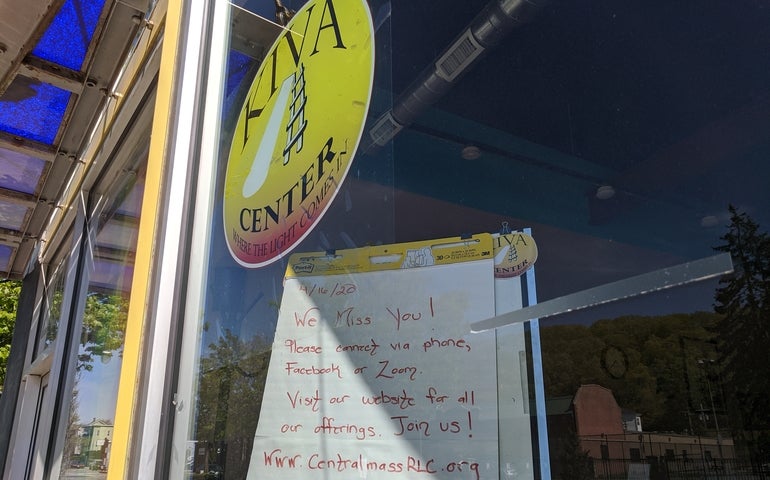 KIVA
CENTER
WHERE THE LIGHT COMES IN
Post-it
3M
IVA
CENTER
4/16/20
We Miss You!
Please connect via phone,
Facebook or Zoom.
Visit our website for all
our offerings. Join us!
www.CentralmassRLC.org